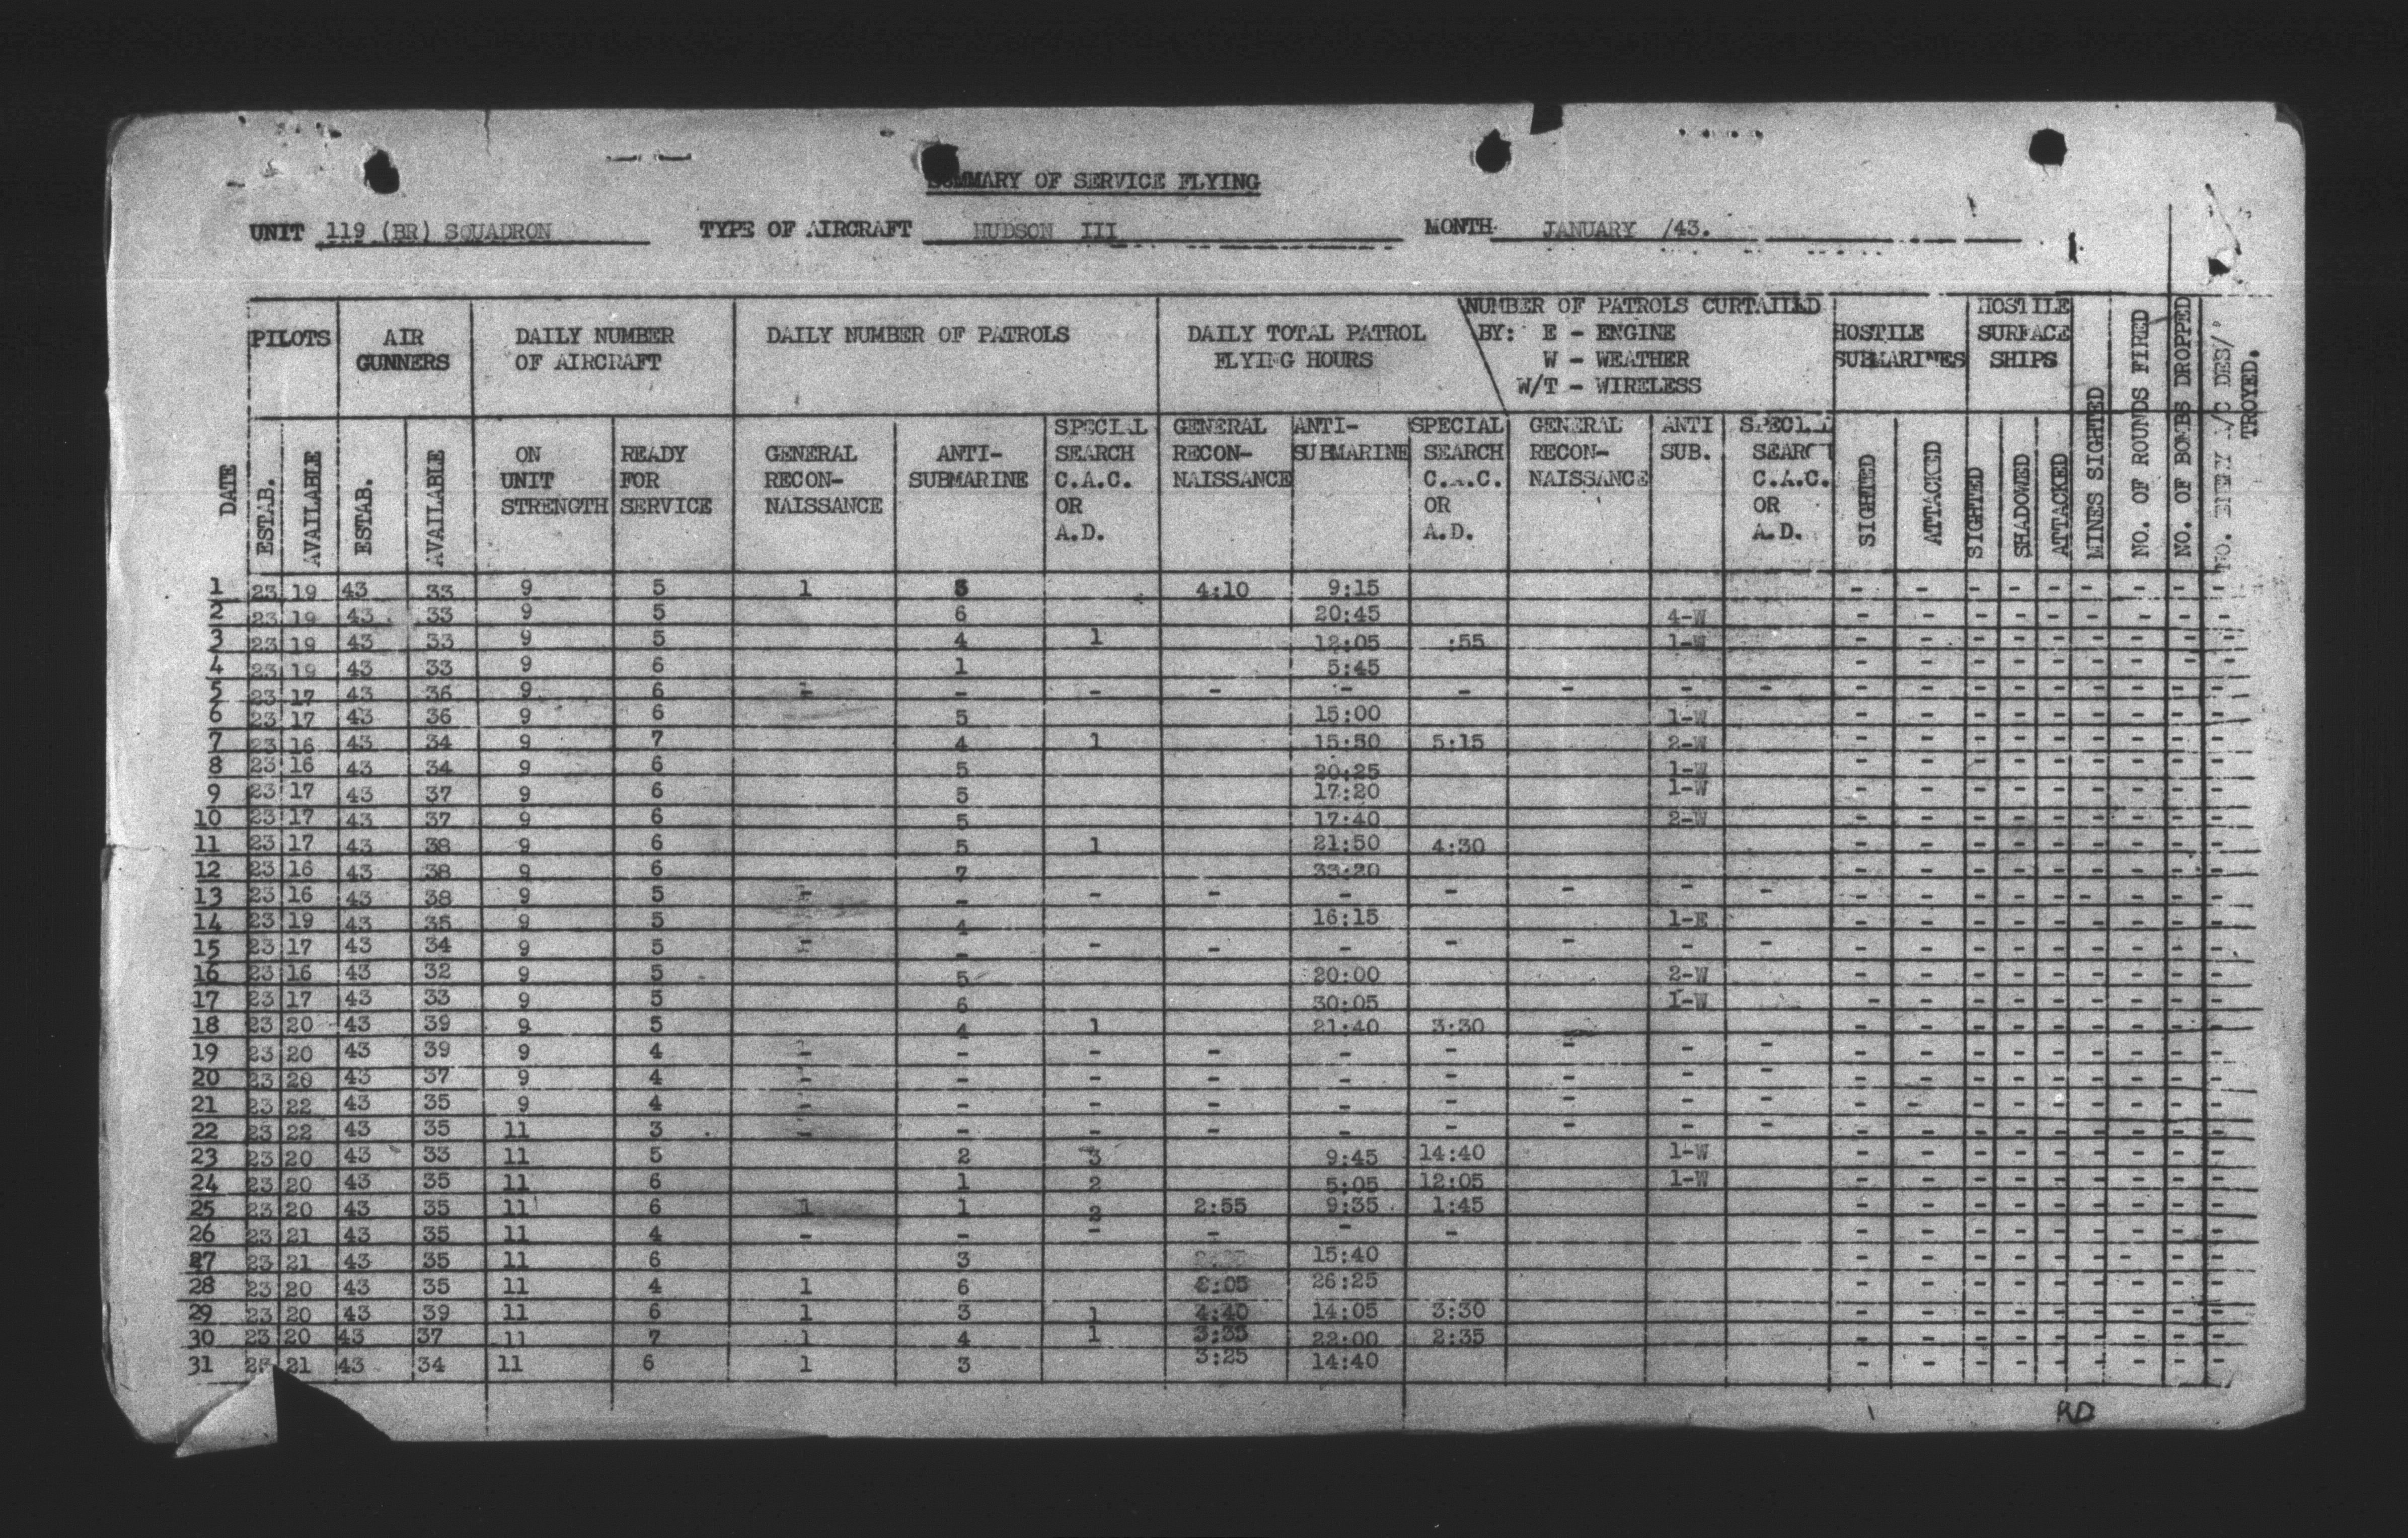 SUMMARY OF SERVICE FLYING
UNIT 119 (BR) SQUADRON TYPE OF AIRCRAFT HUDSON III MONTH JANUARY /43.
PILOTS
AIR
GUNNERS
DAILY NUMBER
OF AIRCRAFT
DAILY NUMBER OF PATROLS
DAILY TOTAL PATROL
FLYING HOURS
NUMBER OF PATROLS CURTAILED
BY: E - ENGINE
W - WEATHER
W/T - WIRELESS
HOSTILE
SUBMARINES
HOSTILE
SURFACE
SHIPS
MINES SIGHTED
NO. OF ROUNDS FIRED
NO. OF BOMBS DROPPED
NO. ENEMY A/C DES/
TROYED.
DATE
ESTAB.
AVAILABLE
ESTAB.
AVAILABLE
ON
UNIT
STRENGTH
READY
FOR
SERVICE
GENERAL
RECON-
NAISSANCE
ANTI-
SUBMARINE
SPECIAL
SEARCH
C.A.C.
OR
A.D.
GENERAL
RECON-
NAISSANCE
ANTI-
SUBMARINE
SPECIAL
SEARCH
C.A.C.
OR
A.D.
GENERAL
RECON-
NAISSANCE
ANTI
SUB.
SPECIAL
SEARCH
C.A.C.
OR
A.D.
SIGHTED
ATTACKED
SIGHTED
SHADOWED
ATTACKED
1 23 19 43 33 9 5 1 4:10 9:15 - - - - - - - - -
2 23 19 43 33 9 5 6 20:45 4-W - - - - - - - - -
3 23 19 43 33 9 5 4 1 12:05 :55 1-W - - - - - - - - -
4 23 19 43 33 9 6 1 5:45 - - - - - - - - -
5 23 17 43 36 9 6 - - - - - - - - - - - - - - - - - -
6 23 17 43 36 9 6 5 15:00 1-W - - - - - - - - -
7 23 16 43 34 9 7 4 1 15:50 5:15 2-W - - - - - - - - -
8 23 16 43 34 9 6 5 20:25 1-W - - - - - - - - -
9 23 17 43 37 9 6 5 17:20 1-W - - - - - - - - -
10 23 17 43 37 9 6 5 17:40 2-W - - - - - - - - -
11 23 17 43 38 9 6 5 1 21:50 4:30 - - - - - - - - -
12 23 16 43 38 9 6 7 33:20 - - - - - - - - -
13 23 16 43 38 9 5 - - - - - - - - - - - - - - - - - -
14 23 19 43 35 9 5 4 16:15 1-E - - - - - - - - -
15 23 17 43 34 9 5 - - - - - - - - - - - - - - - - - -
16 23 16 43 32 9 5 5 20:00 2-W - - - - - - - - -
17 23 17 43 33 9 5 6 30:05 1-W - - - - - - - - -
18 23 20 43 39 9 5 4 1 21:40 3:30 - - - - - - - - -
19 23 20 43 39 9 4 - - - - - - - - - - - - - - - - - -
20 23 20 43 37 9 4 - - - - - - - - - - - - - - - - - -
21 23 22 43 35 9 4 - - - - - - - - - - - - - - - - - -
22 23 22 43 35 11 3 - - - - - - - - - - - - - - - - - -
23 23 20 43 33 11 5 2 3 9:45 14:40 1-W - - - - - - - - -
24 23 20 43 35 11 6 1 2 5:05 12:05 1-W - - - - - - - - -
25 23 20 43 35 11 6 1 1 2 2:55 9:35 1:45 - - - - - - - - -
26 23 21 43 35 11 4 - - - - - - - - - - - - - - -
27 23 21 43 35 11 6 3 15:40 - - - - - - - - -
28 23 20 43 35 11 4 1 6 26:25 - - - - - - - - -
29 23 20 43 39 11 6 1 3 1 4:40 14:05 3:30 - - - - - - - - -
30 23 20 43 37 11 7 1 4 1 3:35 22:00 2:35 - - - - - - - - -
31 23 21 43 34 11 6 1 3 3:25 14:40 - - - - - - - - -
RD